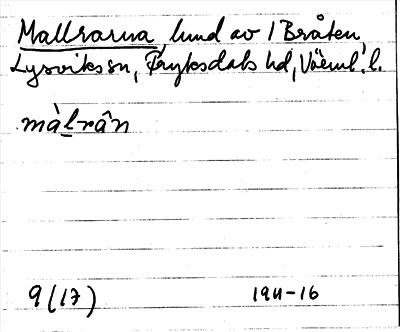 Mallrarna, lund av 1 Bråten,
Lysviks sn, Fryksdals hd, Värml. l.
màlrân
9 (17) 1911-16